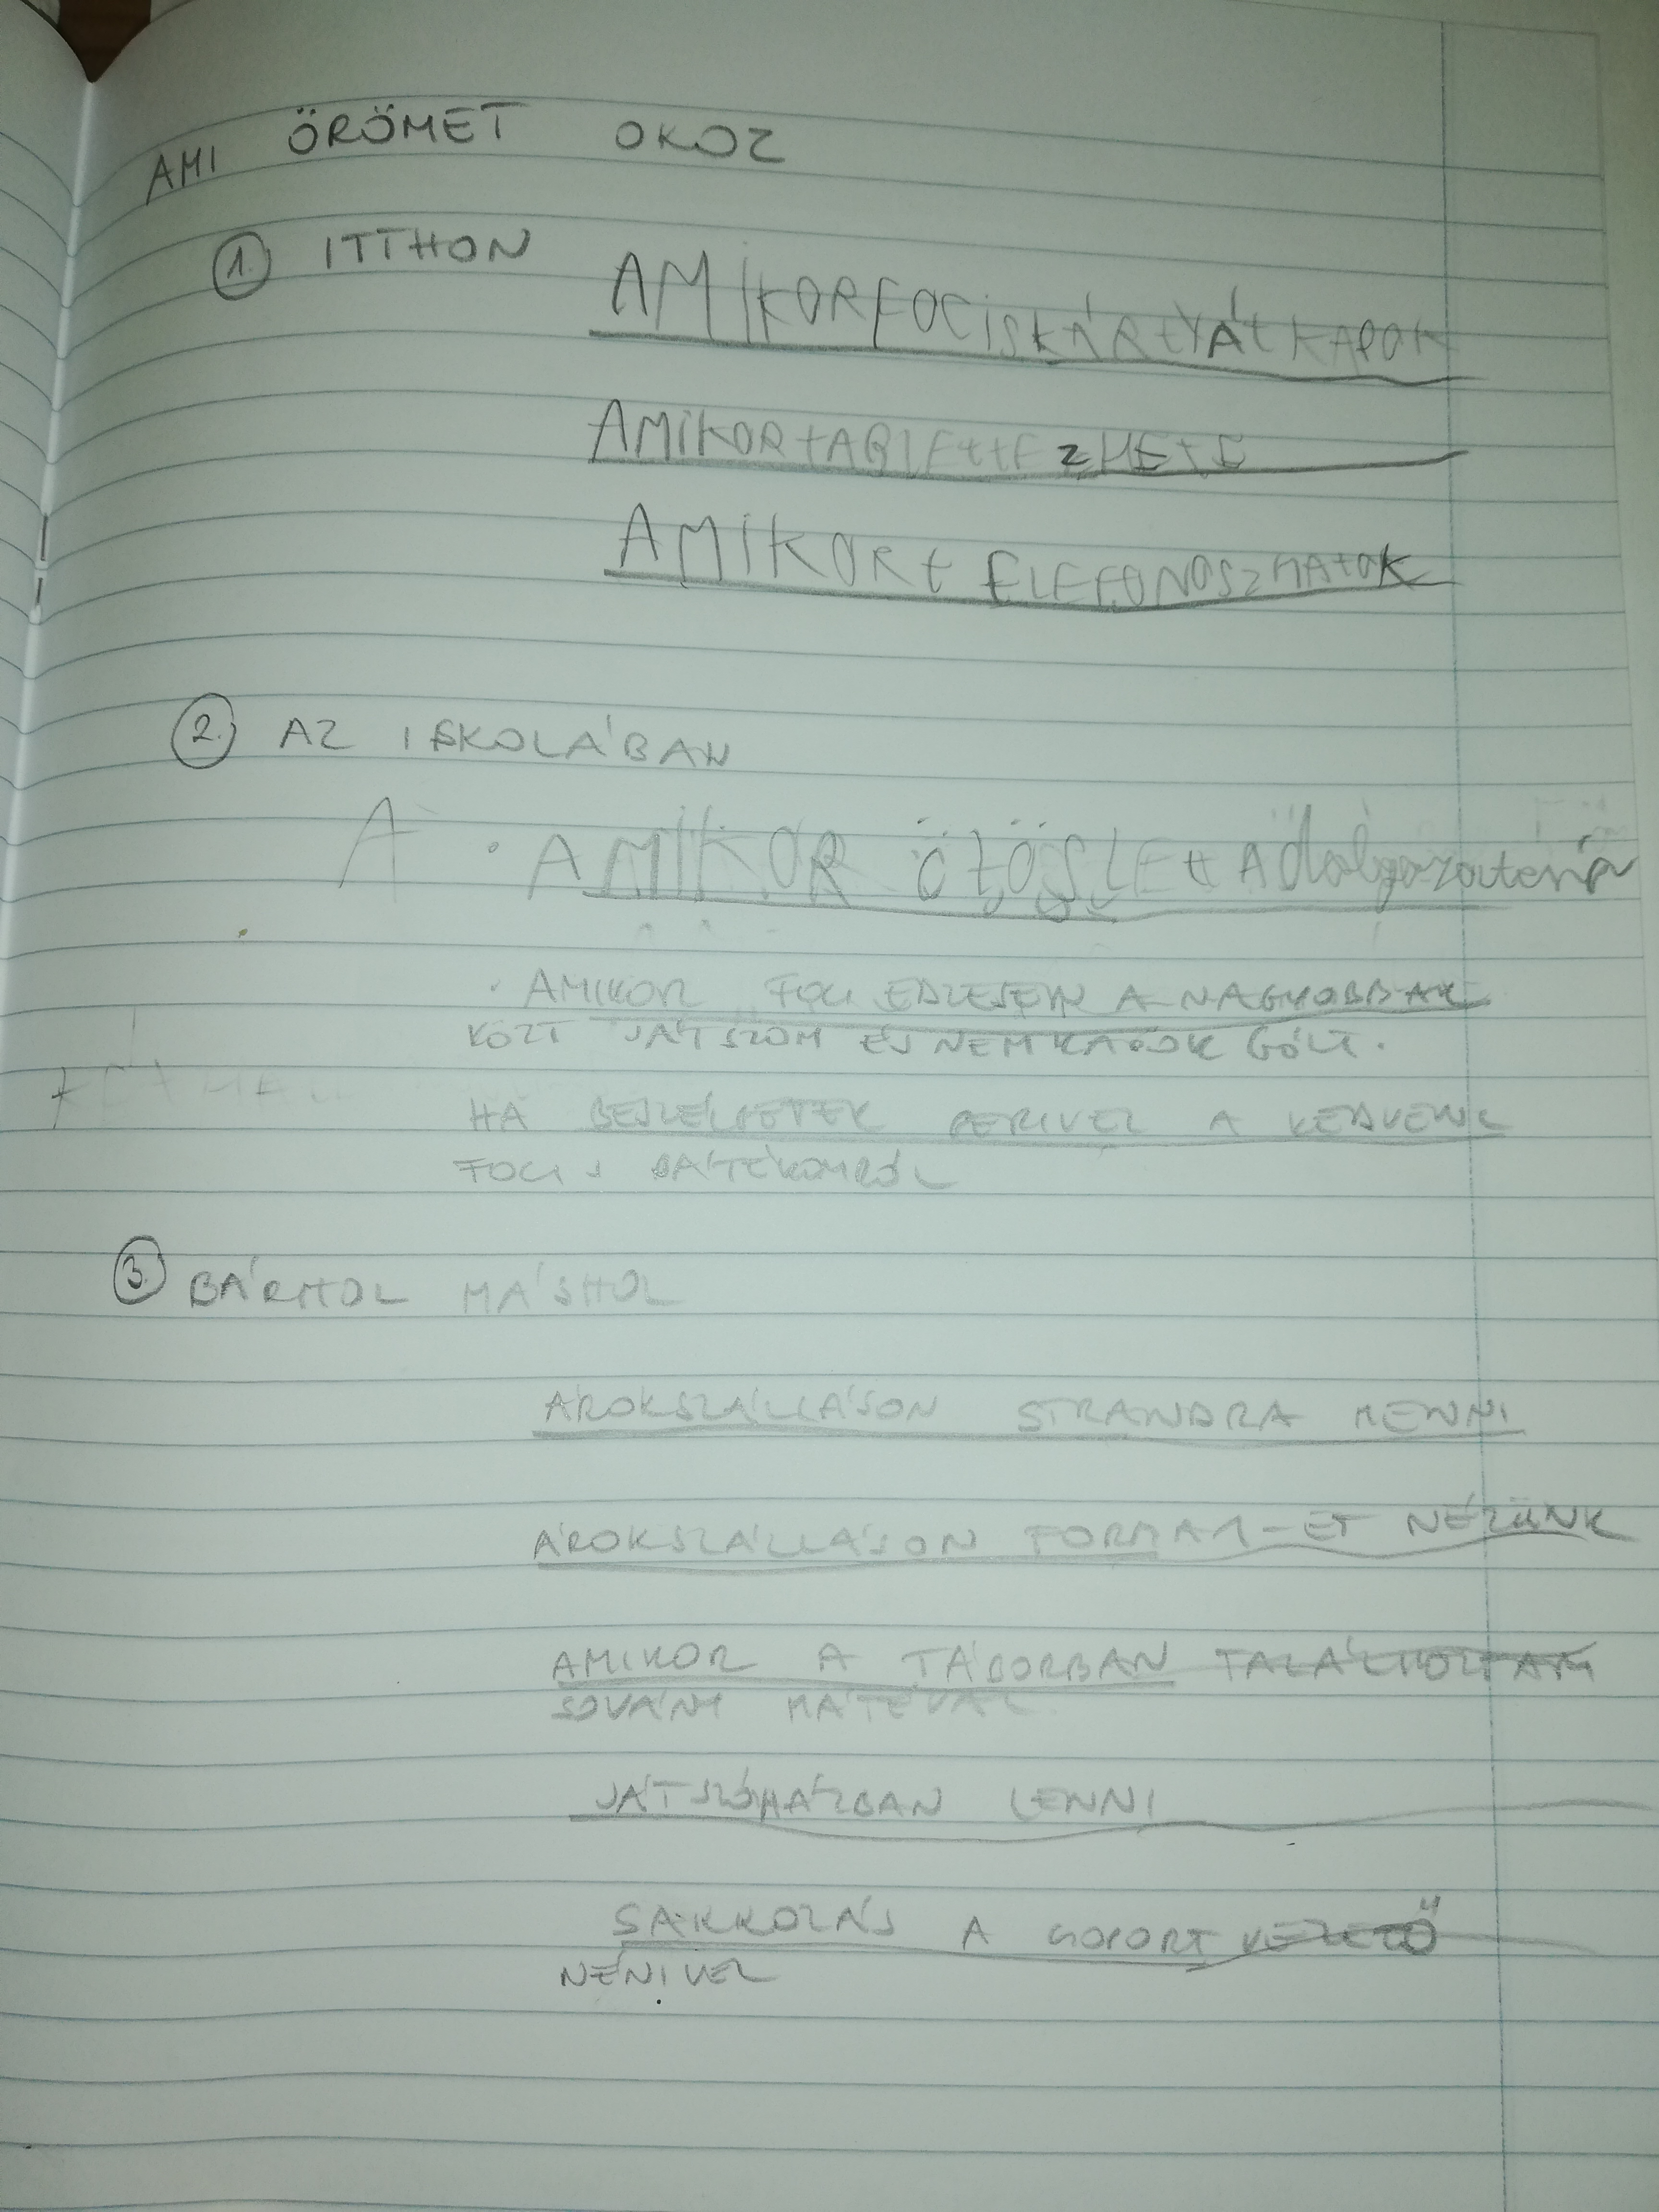 AMI ÖRÖMET OKOZ
1. ITTHON
AMIKORFOCISKÁRtYÁtKAPOK
AMIKORtABLEttEZHETE
AMIKORt ELEFONOSZHATOK
2. AZ ISKOLÁBAN
A • AMIKOR ÖTÖSLEtt A dolgozatom
• AMIKOR FOCI EDZÉSEN A NAGYOBBAK
KÖZT JÁTSZOM ÉS NEM KAPOK GÓLT.
HA BESZÉLGETEK PERIVEL A KEDVENC
FOCIS JÁTÉKOMRÓL
3. BÁRHOL MÁSHOL
ÁROKSZÁLLÁSON STRANDRA MENNI
ÁROKSZÁLLÁSON FORMA1-ET NÉZÜNK
AMIKOR A TÁBORBAN TALÁLKOZTAM
SOVÁNY MÁTÉVAL.
JÁTSZÓHÁZBAN LENNI
SAKKOZÁS A CSOPORT VEZETŐ
NÉNIVEL